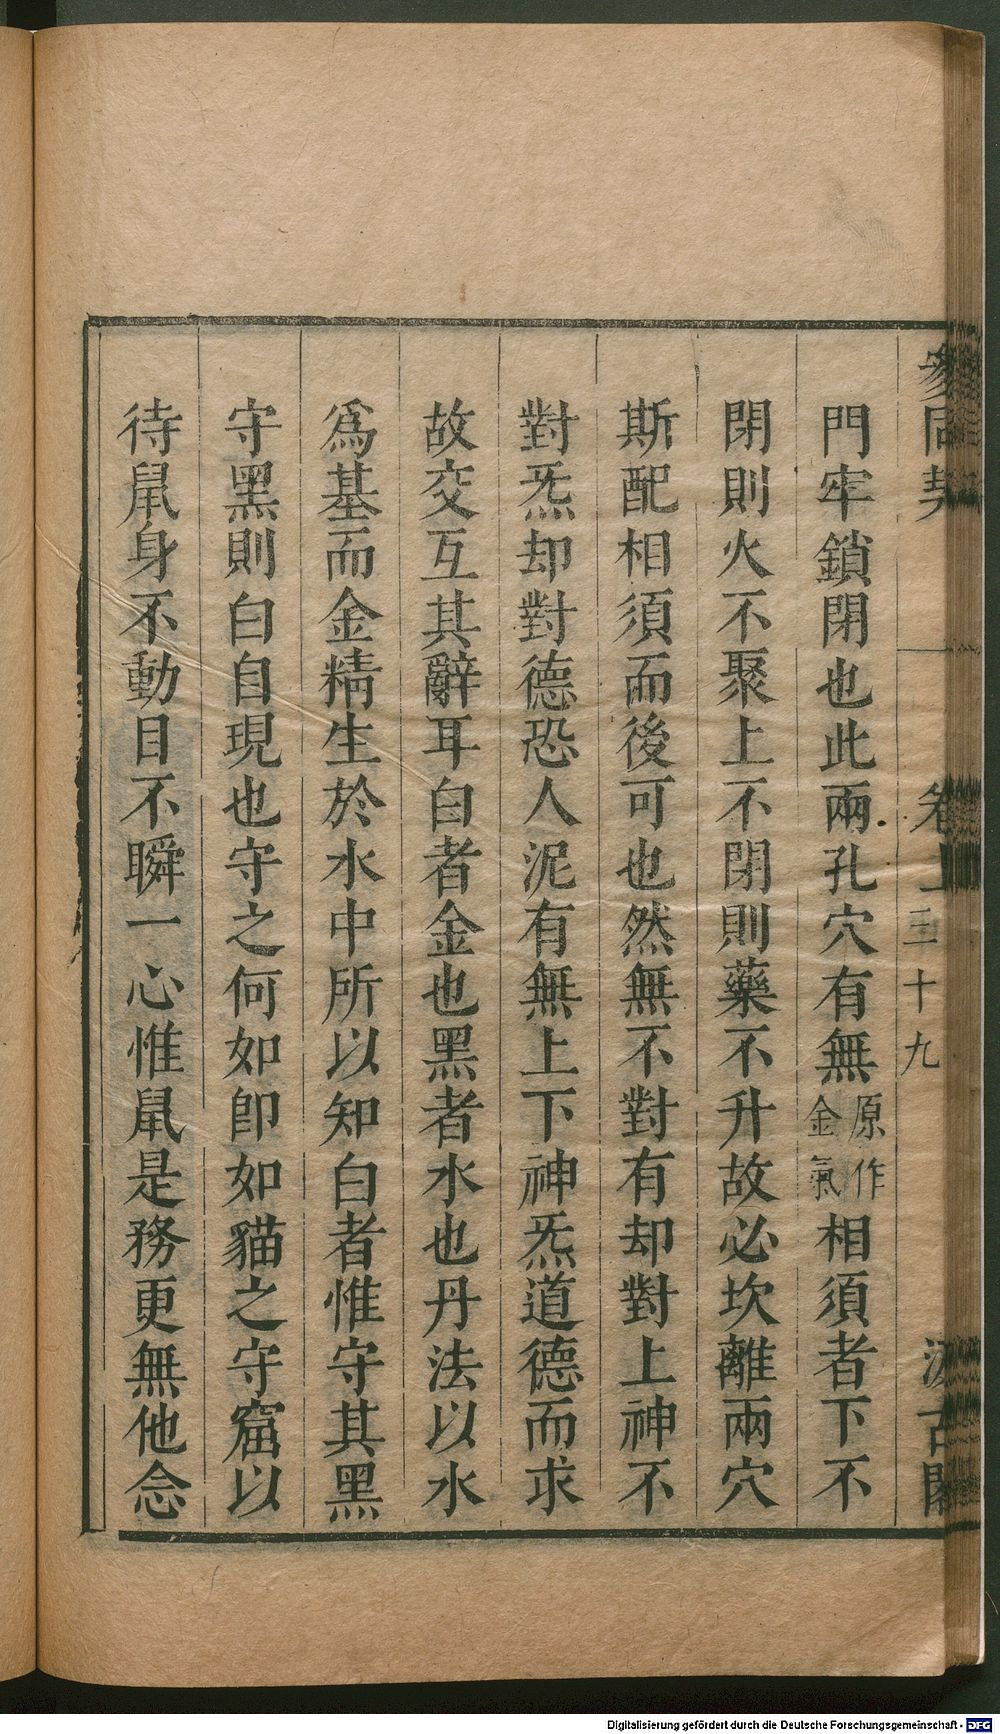 參同契 卷上 三十九 汲古閣
門牢鎖閉也此兩孔穴有無原作金氣相須者下不
閉則火不聚上不閉則藥不升故必坎離兩穴
斯配相須而後可也然無不對有却對上神不
對炁却對德恐人泥有無上下神炁道德而求
故交互其辭耳白者金也黑者水也丹法以水
爲基而金精生於水中所以知白者惟守其黑
守黑則白自現也守之何如卽如貓之守窟以
待鼠身不動目不瞬一心惟鼠是務更無他念
Digitalisierung gefördert durch die Deutsche Forschungsgemeinschaft - DFG